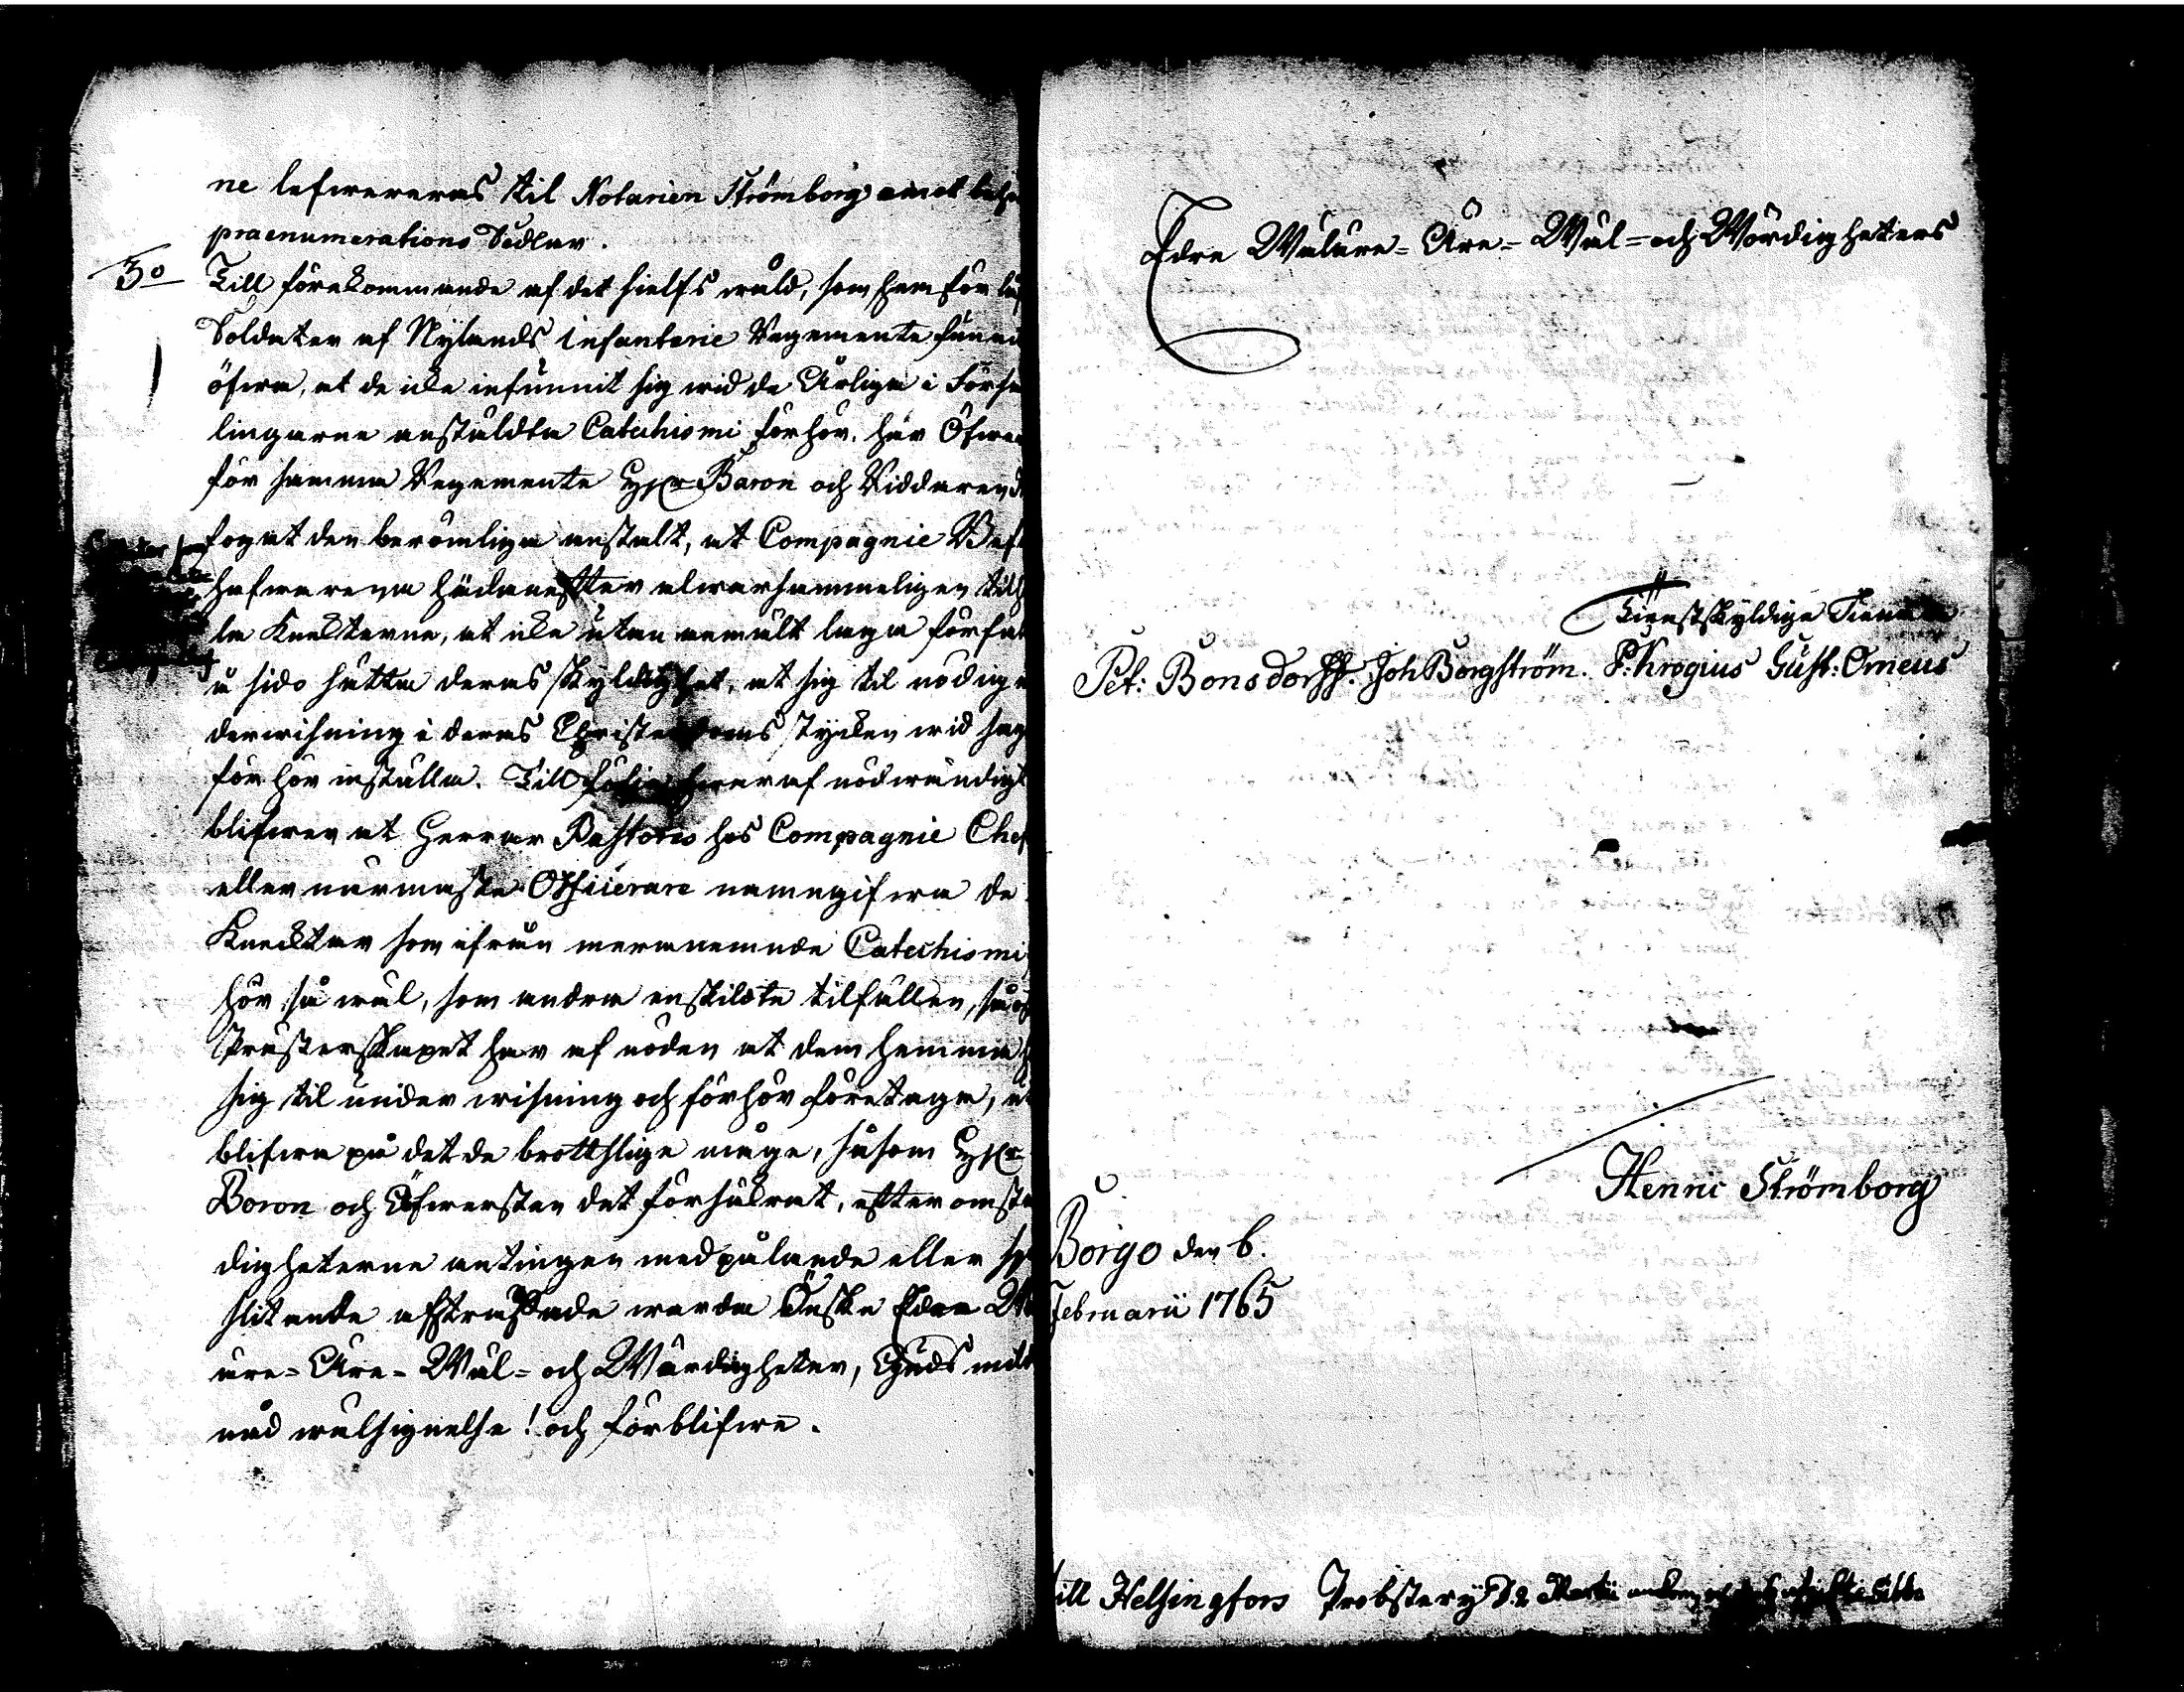 ne lefwereras til Notarien Strömborg emot
praenumerations Sedlar.
3o Till förekommande af det sielfs wåld, som
Soldater af Nylands Infanterie Regemente
öfwa, at de icke infunnit sig wid de Årliga i Förs
lingarne anstälda Catechismi förhör, har Öfwer
för samma Regemente H:r Baron och Riddaren
fogat den berömliga anstalt, at Compagnie Bef
hafwarena hädanefter alwarsammeligen
la Knecktarne, at icke utan anmält laga förfal
å sido sätta deras skyldighet, at sig til nödig
derwisning i deras Christendoms stycken wid sag
förhör inställa. Till följe heraf nödwändigt
blifwer at Herrar Pastores hos Compagnie Chef
eller närmaste Officerare namngifwa de
Knecktar som ifrån mernemnde Catechismi
hör så wäl, som andra enskildta tilfällen, då
Prästerskapet har af nöden at dem hemma
sig til underwisning och förhör företaga,
blifwa på det de brottslige måge, såsom H:r
Baron och Öfwersten det försäkrat, efter omstän
digheterne antingen med pålande eller
slitande afstraffade warda Önske Edra Wä
äre- Äre- Wäl- och Wärdigheter, Guds mild
nåd wälsignelse! och förblifwe.
Edre Wäläre- Äre- Wäl- och Wördigheters
Tienstskyldige Tienare
Pet: Bonsdorff. Joh Borgström. P: Krogius Gust: Omeus
Henric Strömborg
Borgo den 6.
Februarii 1765
till Helsingfors Probstery d. 2 Martii